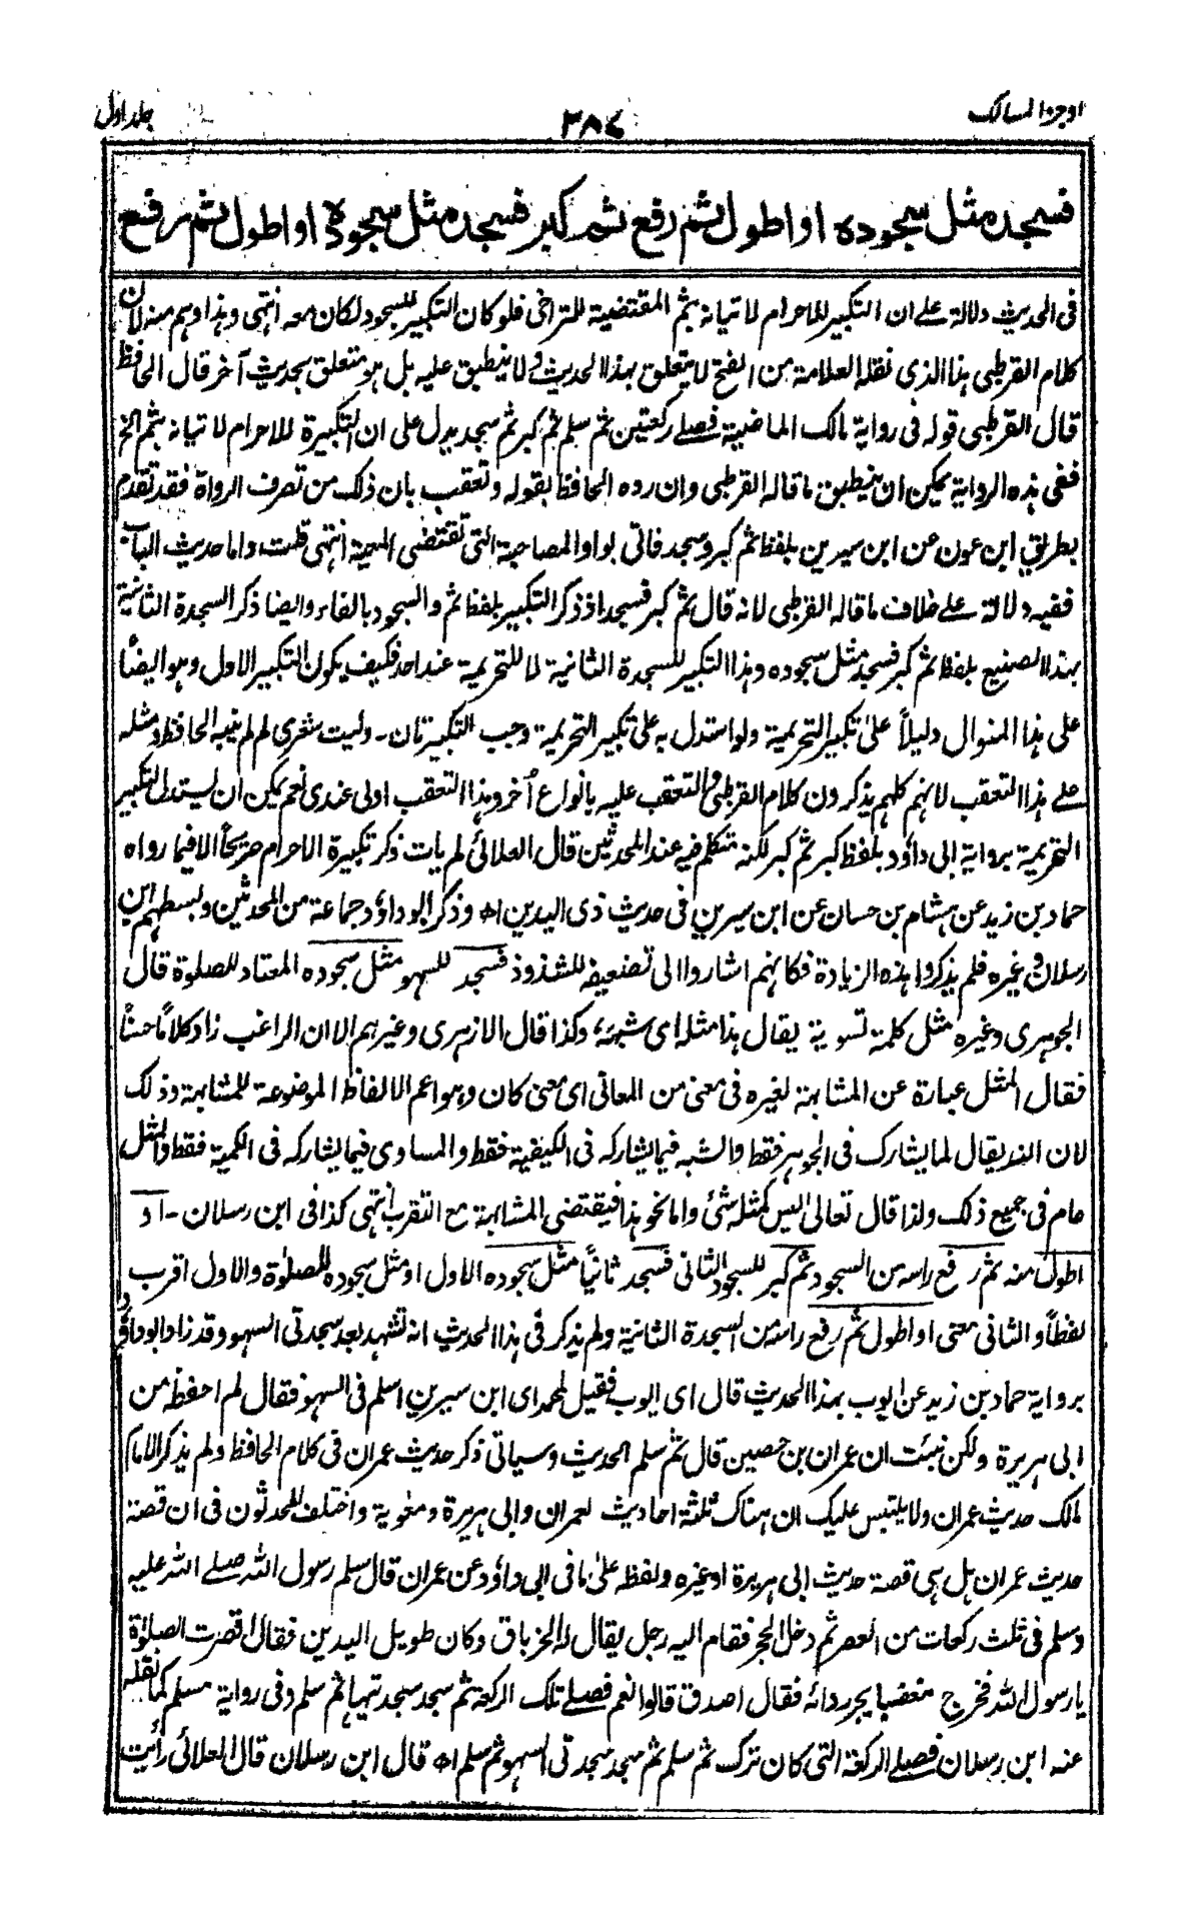 اوجز المسالك
٣٨٤
جلد اول
فسجد مثل سجوده او اطول ثم رفع ثم كبر فسجد مثل سجوده او اطول ثم رفع
فى الحديث دلالة على ان التكبير للاحرام لاتيانه بثم المقتضية للتراخى فلو كان التكبير للسجود لكان معه انتهى وهذا وهم منه لان
كلام القرطبى هذا الذى نقله العلامة من الفتح لا يتعلق بهذا الحديث ولا ينطبق عليه بل هو متعلق بحديث آخر قال الحافظ
قال القرطبى قوله فى رواية مالك الماضية فصلے ركعتين ثم سلم ثم كبر ثم سجد يدل على ان التكبيرة للاحرام لاتيانه بثم الخ
ففى هذه الرواية يمكن ان ينطبق ما قاله القرطبى وان رده الحافظ بقوله وتعقب بان ذلك من تصرف الرواة فقد تقدم
بطريق ابن عون عن ابن سيرين بلفظ ثم كبر وسجد فاتى بواو المصاحبة التى تقتضى المعية انتهى قلت واما حديث الباب
ففيه دلالة على خلاف ما قاله القرطبى لانه قال ثم كبر فسجد اذ ذكر التكبير بلفظ ثم والسجود بالفاء وايضا ذكر السجدة الثانية
بهذا الصنيع بلفظ ثم كبر فسجد مثل سجوده وهذا التكبير للسجدة الثانية لا للتحريمة عند احد فكيف يكون التكبير الاول وهو ايضاً
على هذا المنوال دليلاً على تكبير التحريمة ولو استدل به على تكبير التحريمة وجب التكبيرتان - وليت شعرى لم لم ينبه الحافظ ومثله
على هذا التعقب لانهم كلهم يذكرون كلام القرطبى والتعقب عليه بانواع اُخر وهذا التعقب اولى عندى نعم يمكن ان يستدل لتكبير
التحريمة برواية ابى داؤد بلفظ كبر ثم كبر لكنه متكلم فيه عند المحدثين قال العلائى لم يات ذكر تكبيرة الاحرام صريحاً الا فيما رواه
حماد بن زيد عن هشام بن حسان عن ابن سيرين فى حديث ذى اليدين اھ وذكر ابو داؤد جماعة من المحدثين وبسطهم ابن
رسلان وغيره فلم يذكروا هذه الزيادة فكانهم اشاروا الى تضعيفه للشذوذ فسجد للسهو مثل سجوده المعتاد للصلوة قال
الجوهرى وغيره مثل كلمة تسوية يقال هذا مثله اى شبهه وكذا قال الازهرى وغيرهم الا ان الراغب زاد كلاماً حسناً
فقال المثل عبارة عن المشابهة لغيره فى معنى من المعانى اى معنى كان وهو اعم الالفاظ الموضوعة للمشابهة وذلك
لان الند يقال لما يشارك فى الجوهر فقط والشبه فيما يشاركه فى الكيفية فقط والمساوى فيما يشاركه فى الكمية فقط والمثل
عام فى جميع ذلك ولذا قال تعالى ليس كمثله شئ واما نحو هذا فيقتضى المشابهة مع التقرب انتهى كذا فى ابن رسلان - او
اطول منه ثم رفع راسه من السجود ثم كبر للسجود الثانى فسجد ثانياً مثل سجوده الاول او مثل سجوده للصلوٰة والاول اقرب
لفظاً والثانى معنى او اطول ثم رفع راسه من السجدة الثانية ولم يذكر فى هذا الحديث انه تشهد بعد سجدتى السهو وقد زاد ابو داؤد
برواية حماد بن زيد عن ايوب بهذا الحديث قال اى ايوب فقيل لمحمد اى ابن سيرين اسلم فى السهو فقال لم احفظ من
ابى هريرة ولكن نبئت ان عمران بن حصين قال ثم سلم الحديث وسياتى ذكر حديث عمران فى كلام الحافظ ولم يذكر الامام
مالك حديث عمران ولا يلتبس عليك ان هناك ثلثة احاديث لعمران وابى هريرة ومعوية واختلف المحدثون فى ان قصة
حديث عمران هل هى قصة حديث ابى هريرة او غيره ولفظه علىٰ ما فى ابى داؤد عن عمران قال سلم رسول الله صلے الله عليه
وسلم فى ثلث ركعات من العصر ثم دخل الحجر فقام اليه رجل يقال له الخرباق وكان طويل اليدين فقال اقصرت الصلوٰة
يا رسول الله فخرج مغضبا يجر ردائه فقال اصدق قالوا نعم فصلے تلك الركعة ثم سجد سجدتيها ثم سلم وفى رواية مسلم كما نقله
عنه ابن رسلان فصلے الركعة التى كان ترك ثم سلم ثم سجد سجدتى السهو ثم سلم اھ قال ابن رسلان قال العلائى رأيت